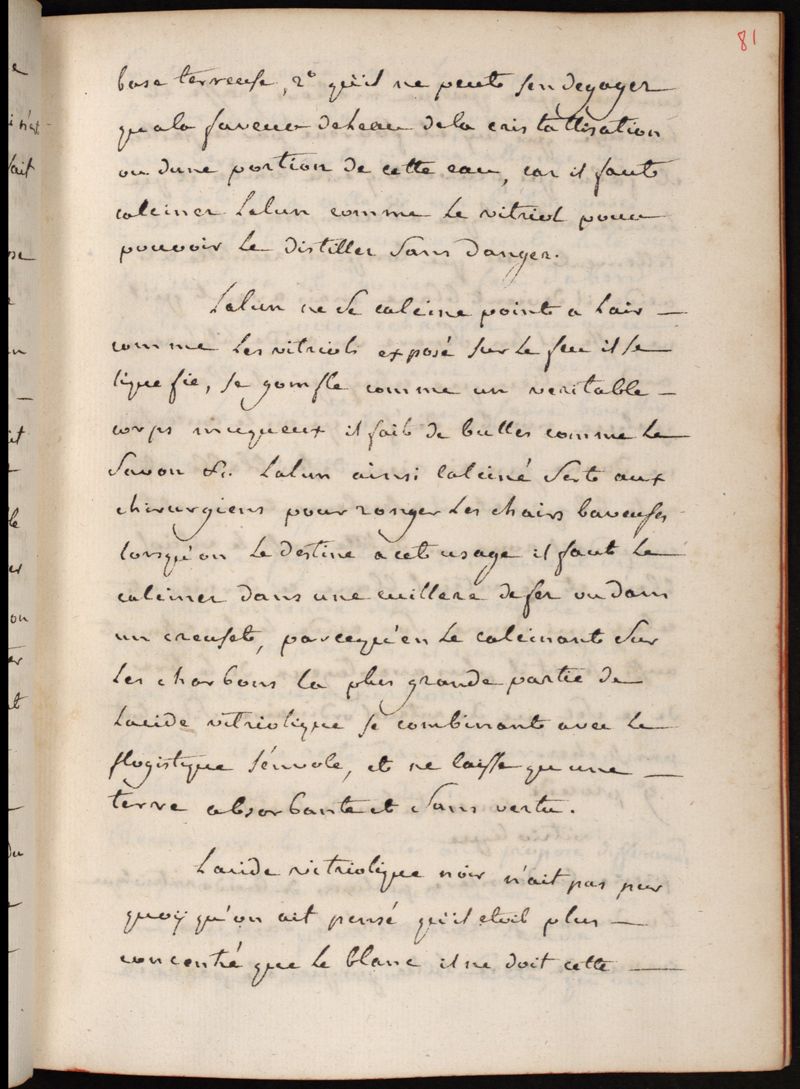 81
base terreuse, 2° qu'il ne peut s'en degager
qu'a la faveur de l'eau de la cristallisation
ou d'une portion de cette eau, car il faut
calciner l'alun comme le vitriol pour
pouvoir le distiller sans danger.
L'alun ne se calcine point a l'air —
comme les vitriols exposé sur le feu il se
liquefie, se gomfle comme un veritable —
corps muqueux il fait de bulles comme le
savon &c. l'alun ainsi calciné sert aux
chirurgiens pour ronger les chairs baveuses
lorsqu'on le destine a cet usage il faut le
calciner dans une cuillere de fer ou dans
un creuset, parcequ'en le calcinant sur
les charbons la plus grande partie de
l'acide vitriolique se combinant avec le
flogistique s'envole, et ne laisse qu'une —
terre absorbante et sans vertu.
L'acide vitriolique noir n'ait pas pur
quoy qu'on ait pensé qu'il etoit plus —
concentré que le blanc il ne doit cette —